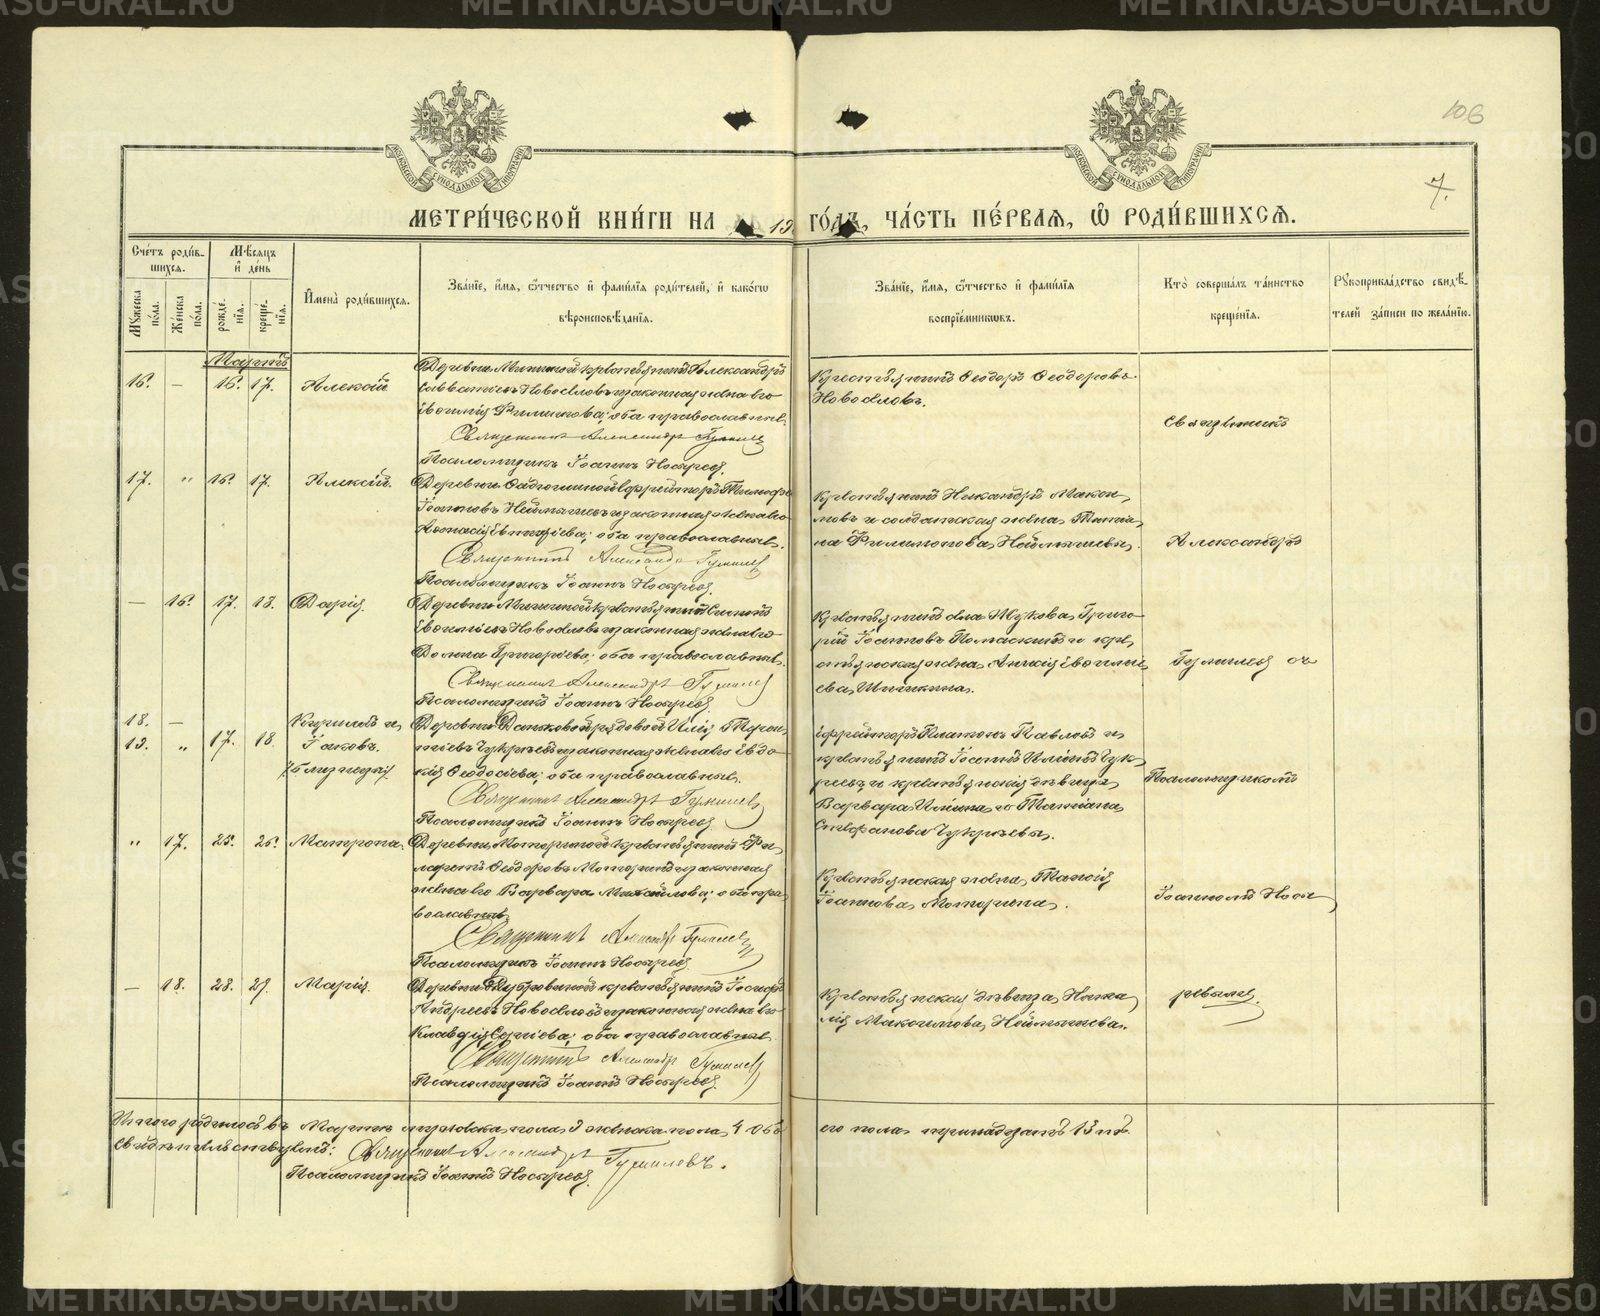 METRIKI.GASO-URAL.RU
106
7.
МЕТРИ́ЧЕСКОЙ КНИ́ГИ НА 19 ГО́ДЪ, ЧА́СТЬ ПЕ́РВАЯ, Ѡ РОДИ́ВШИХСЯ.
Сче́тъ роди́вшихся.
Мꙋ́жеска по́ла.
Же́нска по́ла.
Мѣ́сяцъ и де́нь
рожде́нїя.
креще́нїя.
Имена̀ роди́вшихся.
Зва́нїе, и́мя, ѻ́тчество и фами́лїя роди́телей, и како́гѡ
вѣроисповѣ́данїя.
Зва́нїе, и́мя, ѻ́тчество и фами́лїя
воспрїе́мниковъ.
Кто̀ соверша́лъ та́инство
креще́нїя.
Рꙋкоприкла́дство свидѣ́-
телей за́писи по жела́нїю.
Мартъ
16. — 16. 17. Алексій
Деревни Мининой крестьянинъ Александръ
Савватіевъ Новоселовъ и законная жена его
Евѳимія Филиппова; оба православные.
Священникъ Александръ Гумилев
Псаломщикъ Іоаннъ Носырев
Крестьянинъ Ѳеодоръ Ѳеодоровъ
Новоселовъ.
Священникъ
17. " 16. 17. Алексій.
Деревни ефрейторъ Тимоѳей
Іоанновъ Неймышевъ и законная жена его
Анастасія оба православные.
Священникъ Александръ Гумилев
Псаломщикъ Іоаннъ Носырев
Крестьянинъ Никандръ Макси-
мовъ и солдатская жена Татіа-
на Филимонова Неймышевы.
Александръ
— 16. 17. 18. Дарія.
Деревни Мининой крестьянинъ
Новоселовъ и законная жена его
Домна Григорьева; оба православные.
Священникъ Александръ Гумилев
Псаломщикъ Іоаннъ Носырев
Крестьянинъ села Жукова Григо-
рій Іоанновъ и кре-
стьянская жена Анисія Евѳиміе-
ва Шишкина.
Гумилев съ
18. —
19. " 17. 18. Кириллъ и
Іаковъ.
/близнецы/
Деревни рядовой Илія Терен-
тіевъ Чукреевъ и законная жена его Евдо-
кія Ѳеодосіева; оба православные.
Священникъ Александръ Гумилев
Псаломщикъ Іоаннъ Носырев
Ефрейторъ Платонъ Павловъ и
крестьянинъ Іосифъ Иліинъ Чук-
реевъ и крестьянскія дѣвицы
Варвара Иліина и Татіана
Стефанова Чукреевы.
Псаломщикомъ
" 17. 25. 26. Матрона.
Деревни Моториной крестьянинъ Фи-
ларетъ Ѳеодоровъ Моторинъ и законная
жена его Варвара Михайлова; оба пра-
вославные.
Священникъ Александръ Гумилев
Псаломщикъ Іоаннъ Носырев
Крестьянская жена Таисія
Іоаннова Моторина.
Іоанномъ Носы-
— 18. 28. 29. Марія.
Деревни Дубровиной крестьянинъ Іосифъ
Андреевъ Новоселовъ и законная жена его
Клавдія Сергіева; оба православные.
Священникъ Александръ Гумилев
Псаломщикъ Іоаннъ Носырев
Крестьянская дѣвица Ната-
лія Максимова Неймышева.
ревымъ.
Итого родилось въ Мартѣ мужеска пола 9 женска пола 4 обо-
его пола тринадцать 13 ть.
Свидѣтельствуемъ: Священникъ Александръ Гумилевъ.
Псаломщикъ Іоаннъ Носырев